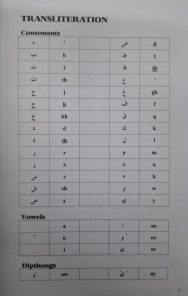 TRANSLITERATION
Consonants
ء ' ض d
ب b ط t
ت t ظ th
ث th ع '
ج j غ gh
ح h ف f
خ kh ق q
د d ك k
ذ th ل l
ر r م m
ز z ن n
س s ه h
ش sh و w
ص s ي y
Vowels
a aa
u و oo
i ي ee
Dipthongs
و aw ي ay